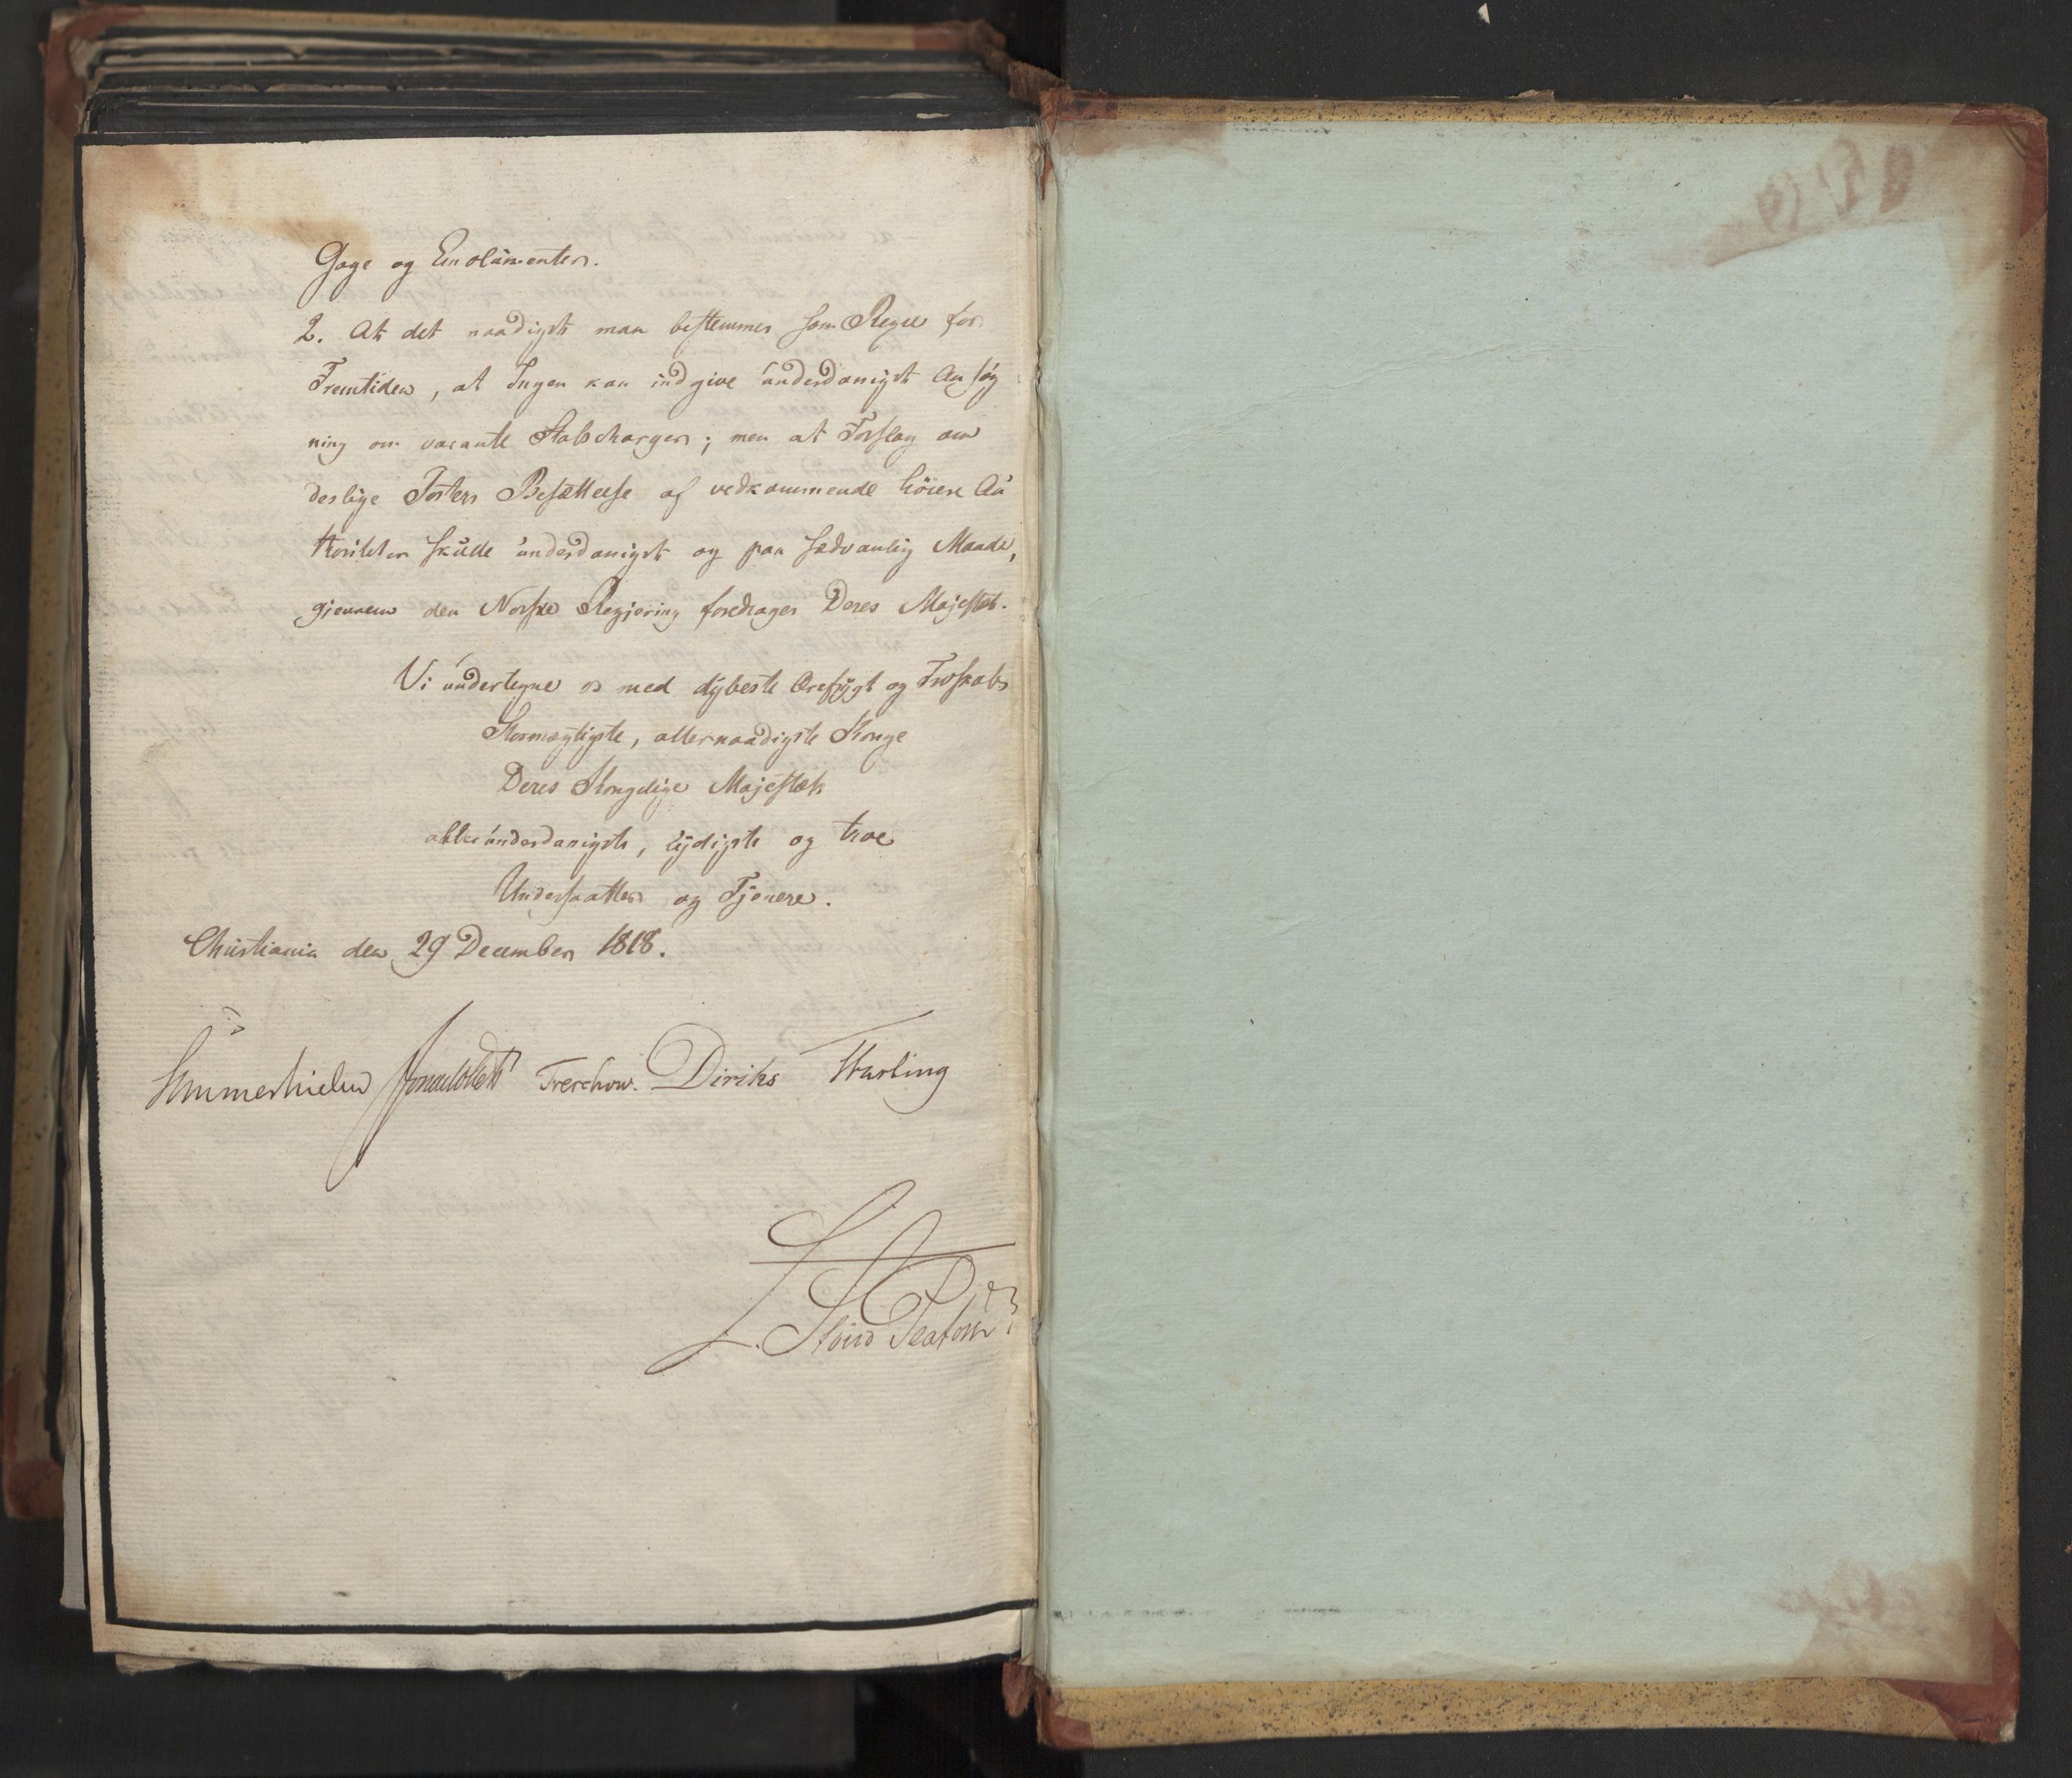 Gage og Emolumenter.
2. At det naadigst maa bestemmes som Regel for
Fremtiden, at Ingen kan indgive underdanigst Ansøg
ning om vacante Stabscharger; men at Forslag om
deslige Posters Besættelse af vedkommende höiere Au
thoriteter skulle underdanigst og paa sædvanlig Maade,
gjennem den Norske Regjering foredrages Deres Majestæt.
Vi undertegne os med dybeste Ærefrygt og Troskab
Stormægtigste, allernaadigste Konge
Deres Kongelige Majestæts
allerunderdanigste, lydigste og troe
Undersaatter og Tjenere.
Christiania den 29 December 1818.
Sommerhielm Treschow. Diriks